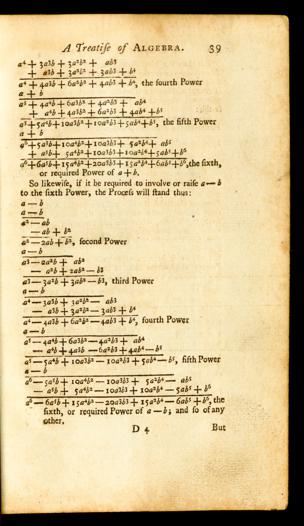 A Treatise of ALGEBRA. 39
a4 + 3a3b + 3a2b2 + ab3
+ a3b + 3a2b2 + 3ab3 + b4
a4 + 4a3b + 6a2b2 + 4ab3 + b4, the fourth Power
a + b
a5 + 4a4b + 6a3b2 + 4a2b3 + ab4
+ a4b + 4a3b2 + 6a2b3 + 4ab4 + b5
a5 + 5a4b + 10a3b2 + 10a2b3 + 5ab4 + b5, the fifth Power
a + b
a6 + 5a5b + 10a4b2 + 10a3b3 + 5a2b4 + ab5
+ a5b + 5a4b2 + 10a3b3 + 10a2b4 + 5ab5 + b6
a6 + 6a5b + 15a4b2 + 20a3b3 + 15a2b4 + 6ab5 + b6, the sixth,
or required Power of a + b.
So likewise, if it be required to involve or raise a — b
to the sixth Power, the Process will stand thus:
a — b
a — b
a2 — ab
— ab + b2
a2 — 2ab + b2, second Power
a — b
a3 — 2a2b + ab2
— a2b + 2ab2 — b3
a3 — 3a2b + 3ab2 — b3, third Power
a — b
a4 — 3a3b + 3a2b2 — ab3
— a3b + 3a2b2 — 3ab3 + b4
a4 — 4a3b + 6a2b2 — 4ab3 + b4, fourth Power
a — b
a5 — 4a4b + 6a3b2 — 4a2b3 + ab4
— a4b + 4a3b2 — 6a2b3 + 4ab4 — b5
a5 — 5a4b + 10a3b2 — 10a2b3 + 5ab4 — b5, fifth Power
a — b
a6 — 5a5b + 10a4b2 — 10a3b3 + 5a2b4 — ab5
— a5b + 5a4b2 — 10a3b3 + 10a2b4 — 5ab5 + b6
a6 — 6a5b + 15a4b2 — 20a3b3 + 15a2b4 — 6ab5 + b6, the
sixth, or required Power of a — b; and so of any
other.
D 4 But